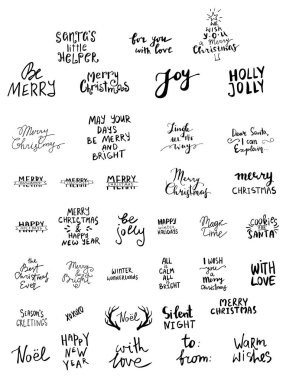 SANTA'S
little
HELPER
for you
with love
WE
WISH
YOU
a Merry
Christmas
Be
MERRY
Merry
Christmas
Joy
HOLLY
JOLLY
Merry
Christmas
MAY YOUR
DAYS
BE MERRY
AND
BRIGHT
Jingle
all the
Way
Dear Santa,
I can
Explain...
MERRY
MERRY
MERRY
Merry
Christmas
merry
CHRISTMAS
HAPPY
MERRY
CHRISTMAS
&
HAPPY
NEW YEAR
be
jolly
HAPPY
WINTER
HOLIDAYS
Magic
Time
cookies
for
SANTA
the
Best
Christmas
Ever
Merry
&
Bright
WINTER
WONDERLAND
ALL
is
CALM
ALL
BRIGHT
I WISH
you
a
Merry
Christmas
WITH
LOVE
SEASON'S
GREETINGS
XOXO
Noël
Silent
NIGHT
MERRY
CHRISTMAS
Noël
HAPPY
NEW
YEAR
with
love
to:
from:
Warm
wishes